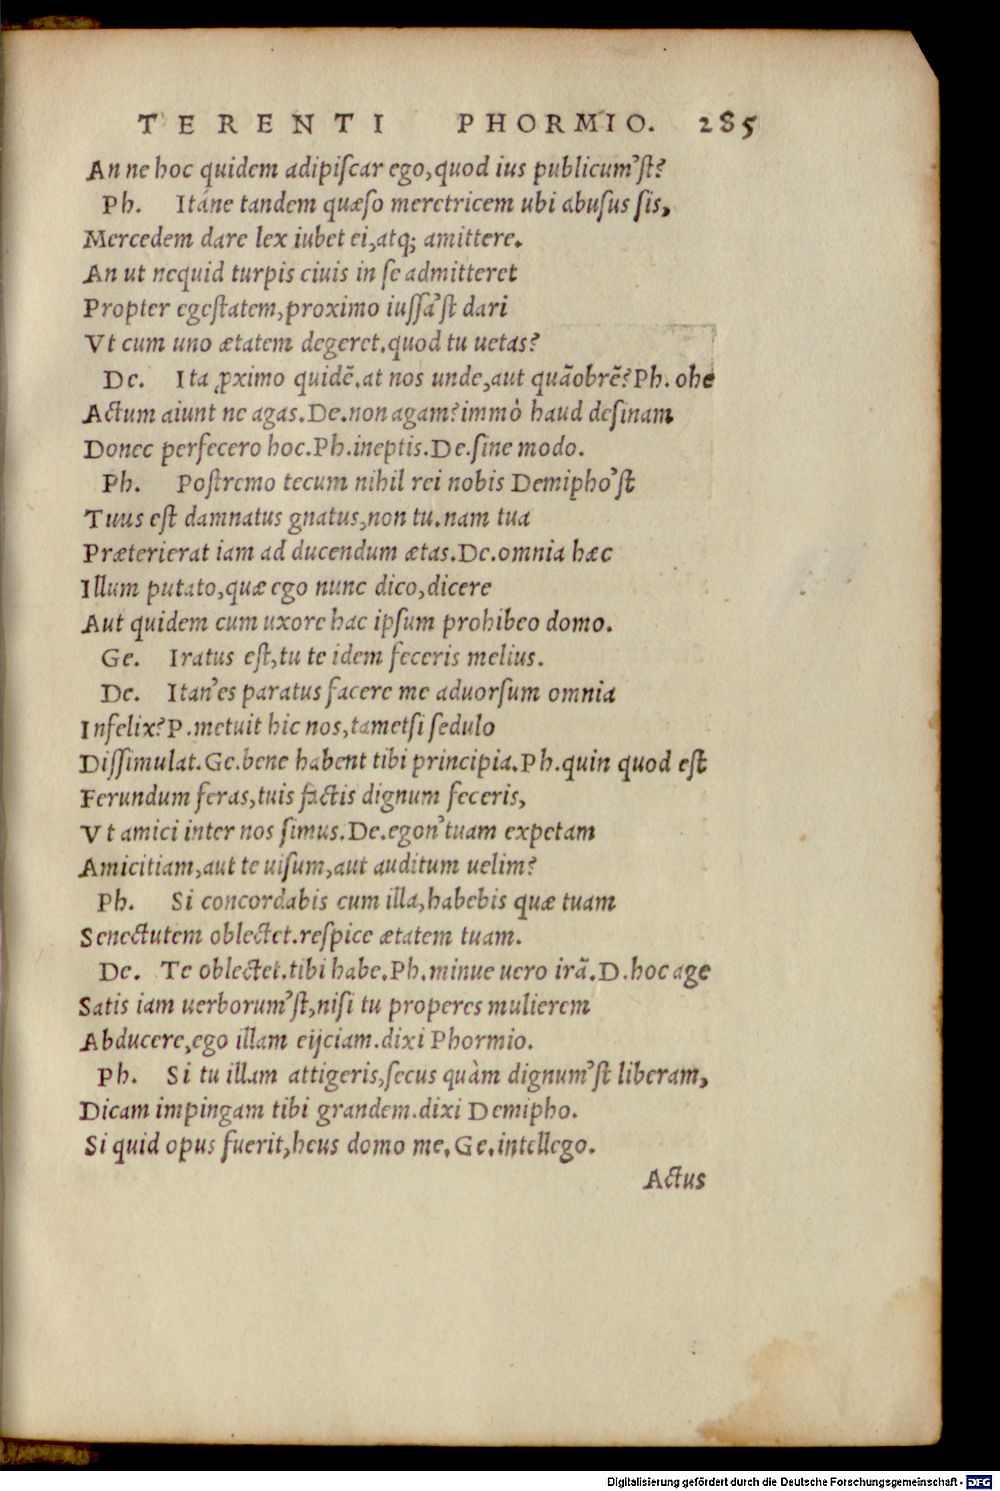 TERENTI PHORMIO. 285
An ne hoc quidem adipiſcar ego,quod ius publicum'ſt?
Ph. Itáne tandem quæſo meretricem ubi abuſus ſis,
Mercedem dare lex iubet ei,atq; amittere.
An ut nequid turpis ciuis in ſe admitteret
Propter egeſtatem,proximo iuſſa'ſt dari
Vt cum uno ætatem degeret.quod tu uetas?
De. Ita ꝓximo quidẽ.at nos unde,aut quãobrẽ?Ph. ohe
Actum aiunt ne agas.De.non agam?immò haud deſinam
Donec perfecero hoc.Ph.ineptis.De.ſine modo.
Ph. Poſtremo tecum nihil rei nobis Demipho'ſt
Tuus eſt damnatus gnatus,non tu.nam tua
Præterierat iam ad ducendum ætas.De.omnia hæc
Illum putato,quæ ego nunc dico,dicere
Aut quidem cum uxore hac ipſum prohibeo domo.
Ge. Iratus eſt,tu te idem feceris melius.
De. Itan'es paratus facere me aduorſum omnia
Infelix?P.metuit hic nos,tametſi ſedulo
Diſſimulat.Ge.bene habent tibi principia.Ph.quin quod eſt
Ferundum feras,tuis factis dignum feceris,
Vt amici inter nos ſimus.De.egon'tuam expetam
Amicitiam,aut te uiſum,aut auditum uelim?
Ph. Si concordabis cum illa,habebis quæ tuam
Senectutem oblectet.reſpice ætatem tuam.
De. Te oblectet.tibi habe.Ph.minue uero irã.D.hoc age
Satis iam uerborum'ſt,niſi tu properes mulierem
Abducere,ego illam eijciam.dixi Phormio.
Ph. Si tu illam attigeris,ſecus quàm dignum'ſt liberam,
Dicam impingam tibi grandem.dixi Demipho.
Si quid opus fuerit,heus domo me.Ge.intellego.
Actus
Digitalisierung gefördert durch die Deutsche Forschungsgemeinschaft - DFG